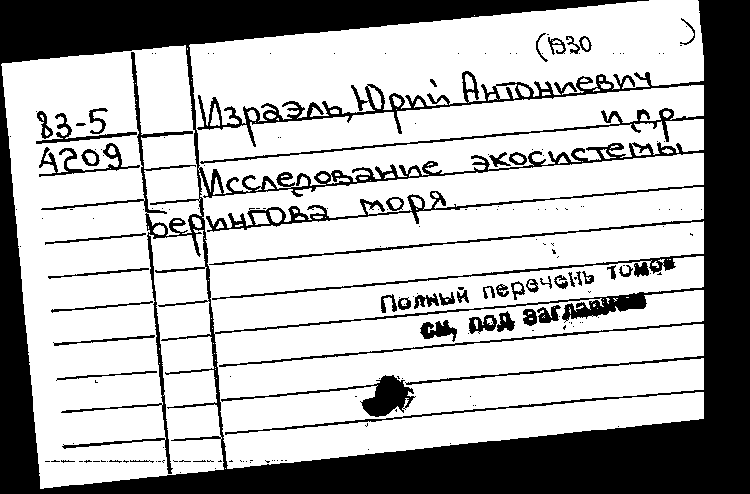 (1930 )
83-5 Израэль, Юрий Антониевич
и др.
А209
Исследование экосистемы
Берингова моря.
Полный перечень томов
см, под заглавием